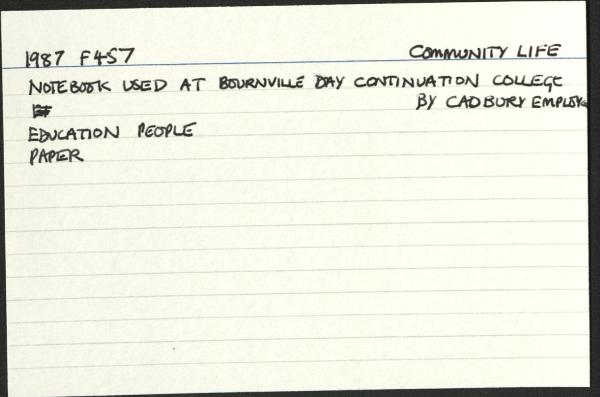 1987 F457 COMMUNITY LIFE
NOTEBOOK USED AT BOURNVILLE DAY CONTINUATION COLLEGE
BY CADBURY EMPLOYE
EDUCATION PEOPLE
PAPER